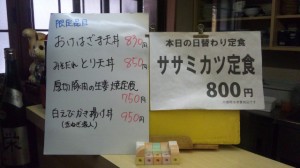 限定品目
おけはざま天丼 890円
みぞれ とり天丼 850円
厚切豚肉の生姜焼定食
750円
白えびかき揚げ丼 950円
(玉ねぎ入)
本日の日替わり定食
ササミカツ定食
800円